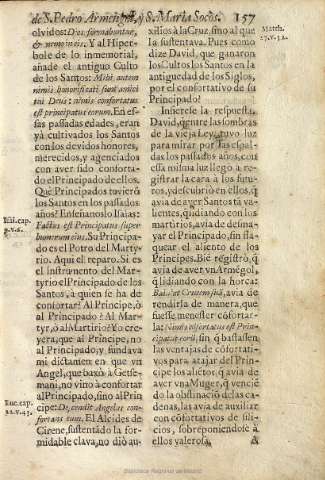 de S. Pedro Armengol, y S. Maria Socós. 157
olvidos: Deus fornabuntur,
& nemo meis. Y al Hiper-
bole de lo inmemorial,
añade el antiguo Culto
de los Santos: Mihi autem
nimis honorificati sunt amici
tui Deus: nimis confortatus
est principatus eorum. En es-
sas passadas edades, eran
yà cultivados los Santos
con los devidos honores,
merecidos, y agenciados
con aver sido conforta-
do el Principado de ellos.
Què Principados tuvierõ
los Santos en los passados
años? Enseñanoslo Isaías:
Isai. cap.
9. v. 6.
Factus est Principatus super
humerum eius. Su Principa-
do es el Potro del Marty-
rio. Aqui el reparo. Si es
el Instrumento del Mar-
tyrio el Principado de los
Santos, à quien se ha de
confortar? Al Principe, ò
al Principado? Al Mar-
tyr, ò al Martirio? Yo cre-
yera, que al Principe, no
al Principado, y fundava
mi dictamen en que vn
Angel, que baxò à Getse-
mani, no vino à confortar
al Principado, sino al Prin-
Luc. cap.
22. v. 43.
cipe: De cœlo Angelus con-
fortans eum. El Alcides de
Cirene, sustentãdo la for-
midable clava, no diò au-
xilios à la Cruz, sino al que
la sustentava. Pues como
Matth.
27. v. 32.
dize David, que ganaron
los Cultos los Santos en la
antiguedad de los Siglos,
por el confortativo de su
Principado?
Insertele la respuesta.
David, entre las sombras
de la vieja Ley, tuvo luz
para mirar por las espal-
das los passados años, con
essa misma luz llegò à re-
gistrar la cara à los futu-
ros, y descubriò en ellos, q̃
avia de aver Santos tã va-
lientes, q̃ lidiando con los
martirios, avia de desma-
yar el Principado, sin fla-
quear el aliento de los
Principes. Biẽ registrò, q̃
avia de aver vn Armẽgol,
q̃ lidiando con la horca:
avia de
rendirla de manera, que
fuesse menester cõfortar-
la: Nimis cõfortatus est Prin-
cipatus eorũ, sin q̃ bastassen,
las ventajas de cõfortati-
vos para atajar del Prin-
cipe los aliẽtos, q̃ avia de
aver vna Muger, q̃ vencié
do la obstinaciõ de las ca-
denas, las avia de auxiliar
con cõfortativos de sili-
cios, sobreponiendose à
ellos valerosa. &
Biblioteca Nacional de España